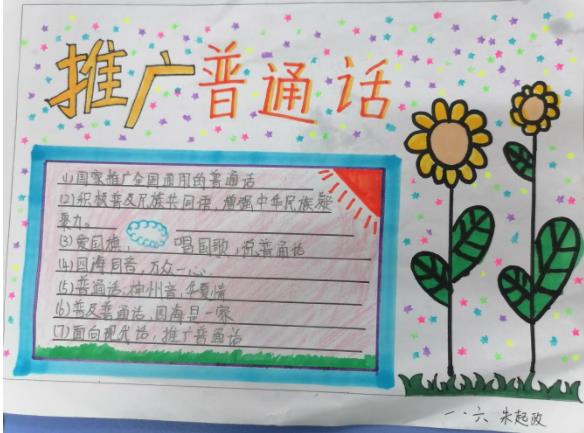 推广普通话
(1)国家推广全国通用的普通话
(2)积极普及民族共同语,增强中华民族凝
聚力。
(3)爱国旗, 唱国歌,说普通话
(4)四海同音,万众一心
(5)普通话,神州音,华夏情
(6)普及普通话,四海是一家
(7)面向现代话,推广普通话
一·六 朱起政